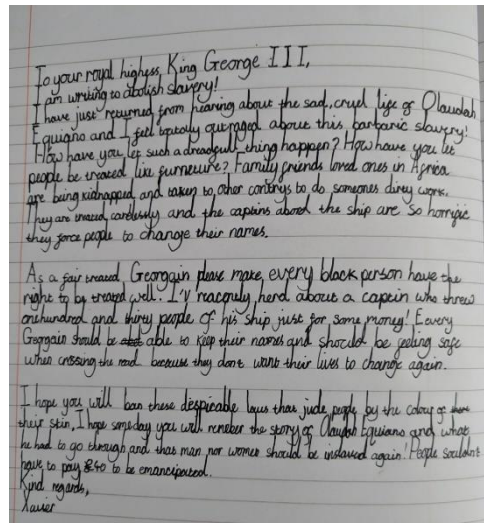 To your royal highess, King George III,
I am writing to abolish slavery!
I have just returned from hearing about the sad, cruel life of Olaudah
Equiano and I feel totally outraged about this barbaric slavery!
How have you let such a dreadfull thing happen? How have you let
people be treated like furneture? Family friends loved ones in Africa
are being kidnapped and taken to other contrys to do someones dirty work.
They are treated carelessly and the captins abord the ship are so horrific
they force people to change their names.
As a fair treated Georgain please make every black person have the
right to by treated well. I'v reacently herd about a captin who threw
onehundred and thirty people of his ship just for some money! Eavery
Georgain should be able to keep their names and should be feeling safe
when crossing the road because they dont want their lives to change again.
I hope you will ban these despicable laws that jude people by the colour of
their skin. I hope someday you will remeber the story of Olaudah Equiano and what
he had to go through and that man nor women should be inslaved again! People souldn't
have to pay £40 to be emancipated.
Kind regards,
Xavier